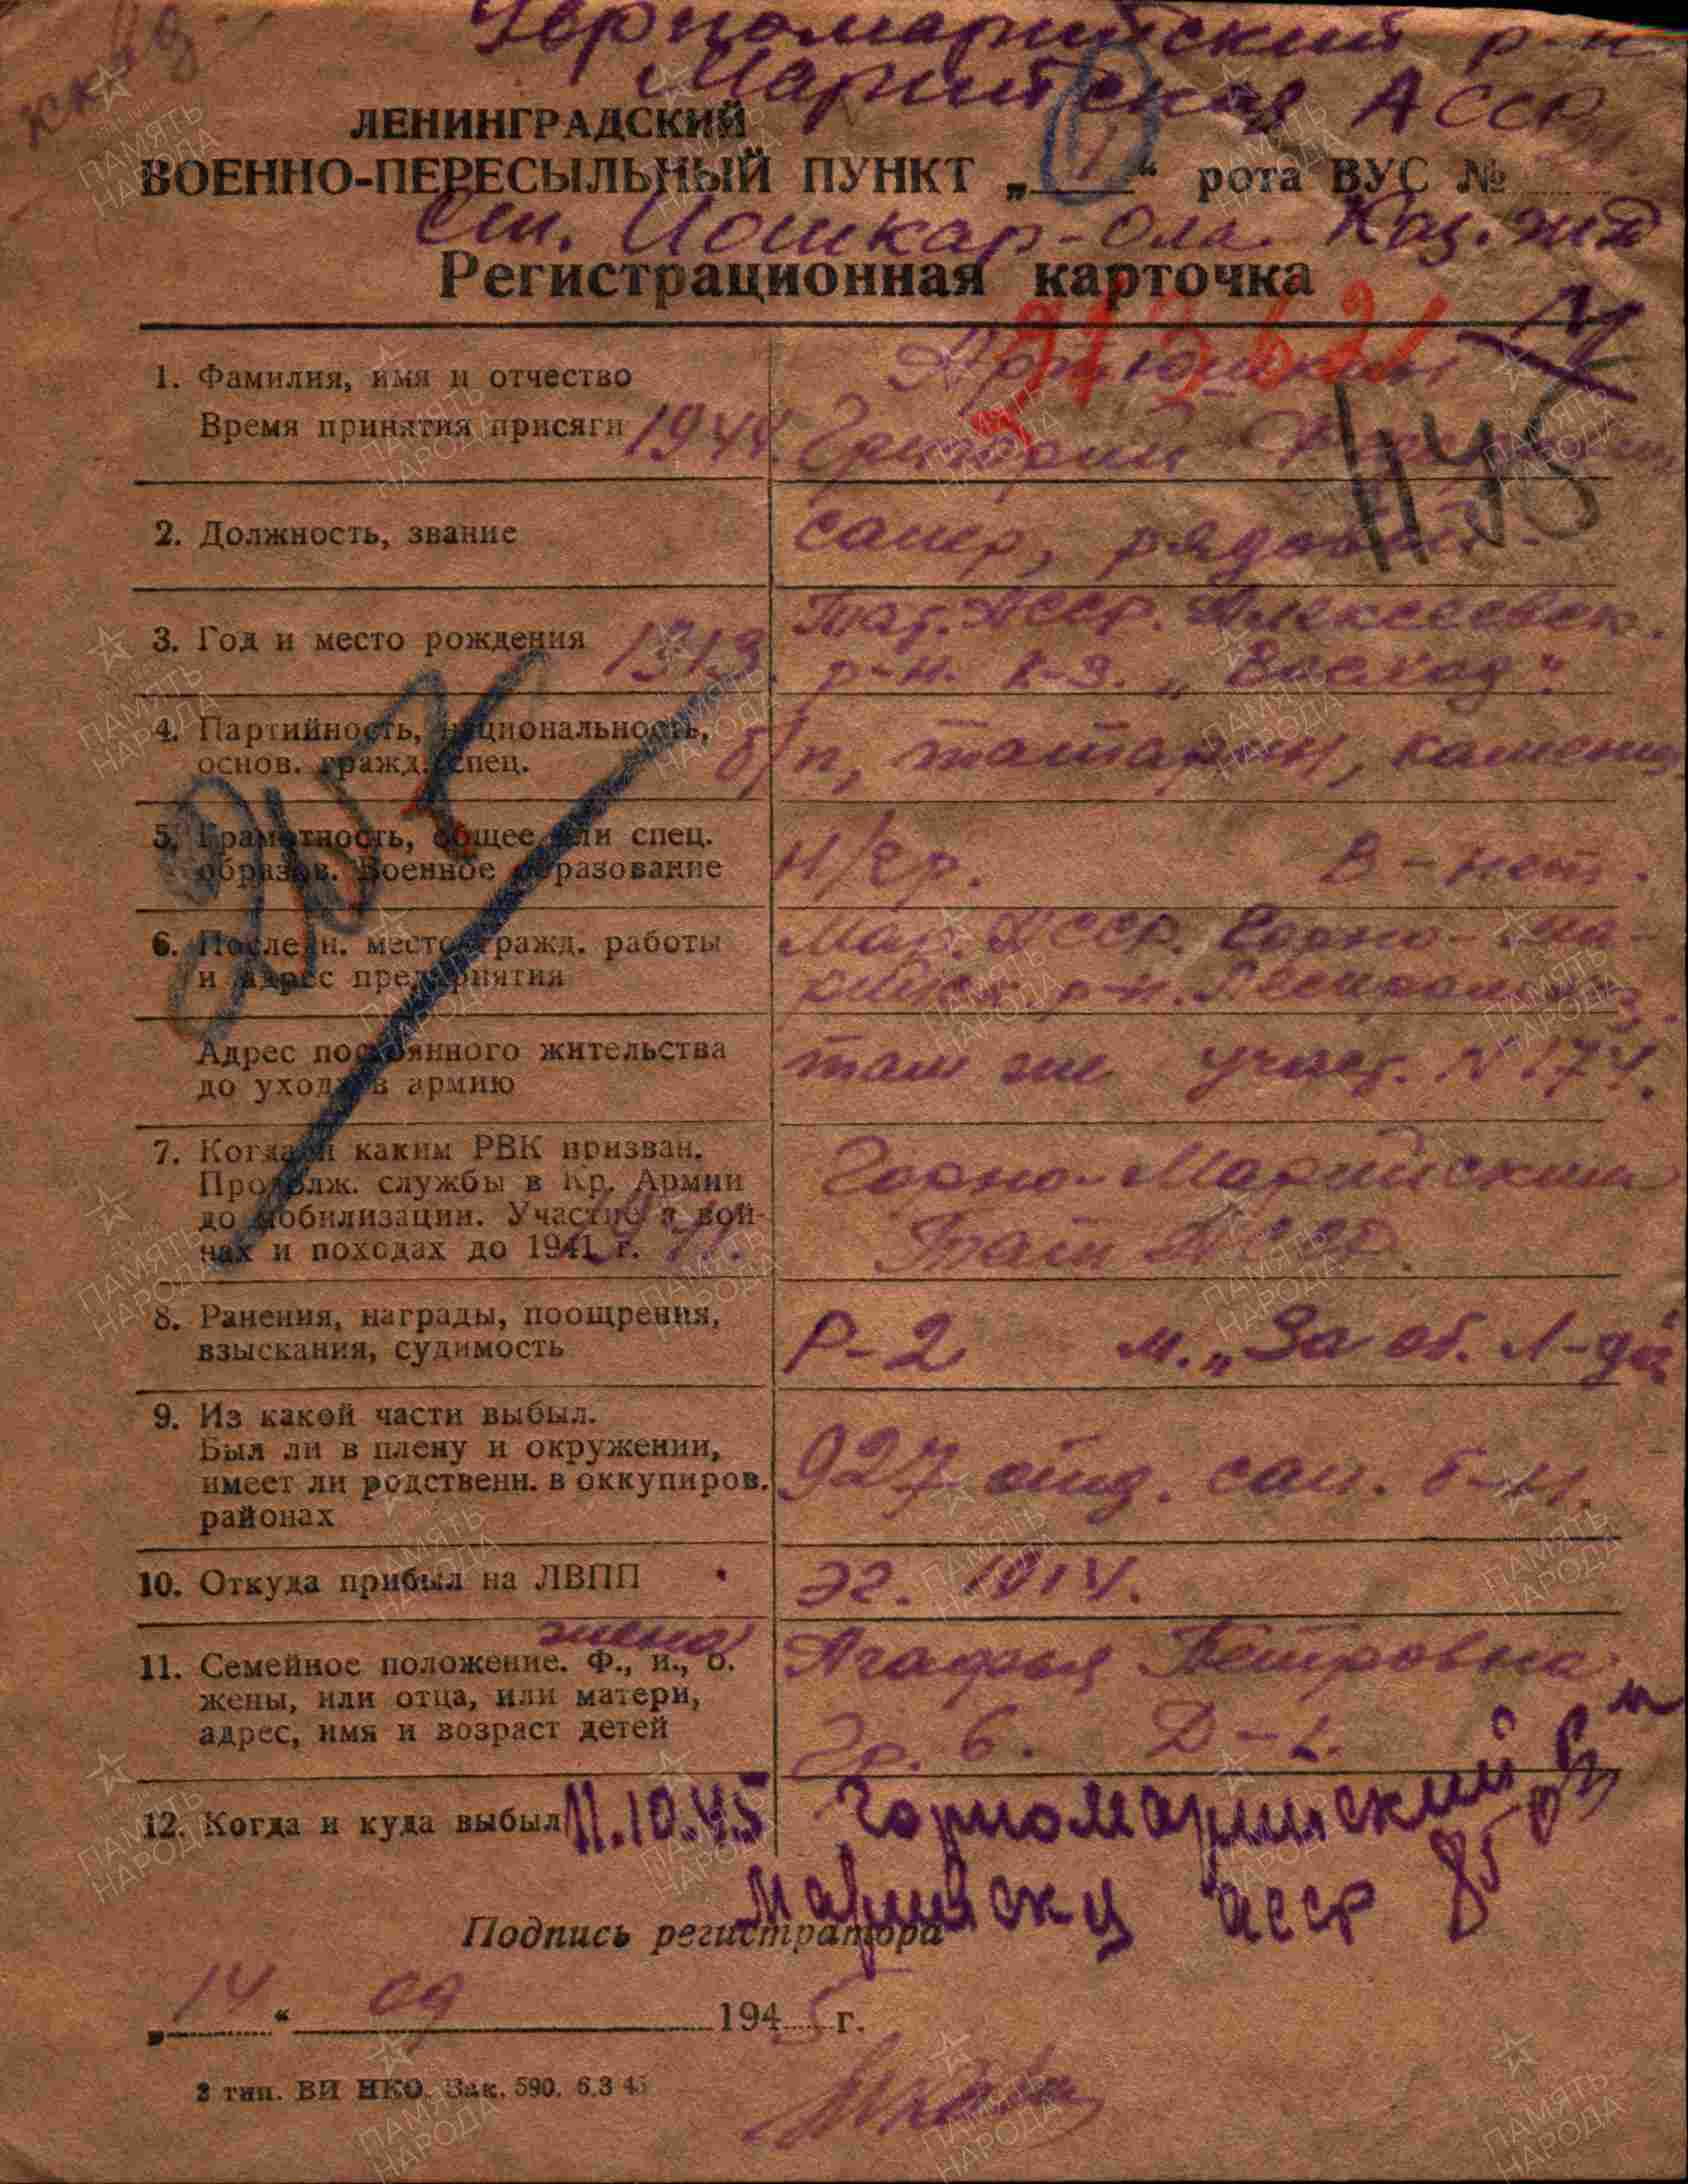 Марийская АССР
ЛЕНИНГРАДСКИЙ
ВОЕННО-ПЕРЕСЫЛЬНЫЙ ПУНКТ „ 1 “ рота ВУС №
Ст. Йошкар-Ола. Каз. жд
Регистрационная карточка
1. Фамилия, имя и отчество
Время принятия присяги 1944. Григорий
2. Должность, звание сапер, рядовой
3. Год и место рождения 1919. Тат. АССР. Алексеевск.
р-н. к-з. „Восход".
4. Партийность, национальность, основ. гражд. спец. б/п, татарин, каменщ.
5. Грамотность, общее или спец. образов. Военное образование н/гр. В - нет.
6. Последн. место гражд. работы Мар. АССР. Горно-ма-
и адрес предприятия р-н.
Адрес постоянного жительства до ухода в армию там же участ. N 174.
7. Когда и каким РВК призван. Горно-Марийским
Продолж. службы в Кр. Армии
до мобилизации. Участие в вой-
нах и походах до 1941 г. Тат АССР.
8. Ранения, награды, поощрения, взыскания, судимость Р-2 м. „За об. Л-да"
9. Из какой части выбыл.
Был ли в плену и окружении,
имеет ли родственн. в оккупиров. 927 отд. сап. б-н.
районах
10. Откуда прибыл на ЛВПП эг. 1014.
жена
11. Семейное положение. Ф., и., о. Агафья Петровна
жены, или отца, или матери,
адрес, имя и возраст детей Гр. 6. Д-1.
12. Когда и куда выбыл 11.10.45 Горномарийский
асср 85
Подпись регистратора
„ 14 “ 09 1945 г.
2 тип. ВИ НКО. Зак. 590. 6.3 45
ПАМЯТЬ НАРОДА